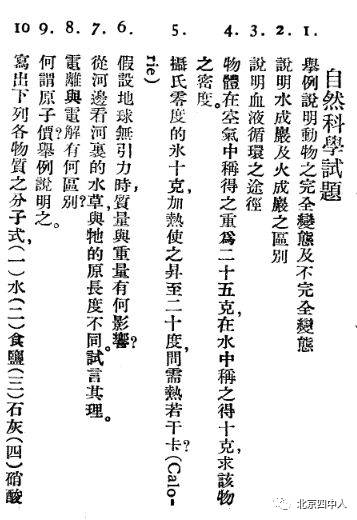 自然科學試題
1. 舉例說明動物之完全變態及不完全變態
2. 說明水成巖及火成巖之區別
3. 說明血液循環之途徑
4. 物體在空氣中稱得之重爲二十五克，在水中稱之得十克，求該物
之密度。
5. 攝氏零度的氷十克，加熱使之昇至二十度，問需熱若干卡？(Calo-
rie)
6. 假設地球無引力時，質量與重量有何影響？
7. 從河邊看河裏的水草與牠的原長度不同。試言其理。
8. 電離與電解有何區別？
9. 何謂原子價？舉例說明之。
10 寫出下列各物質之分子式，(一)水(二)食鹽(三)石灰(四)硝酸
北京四中人